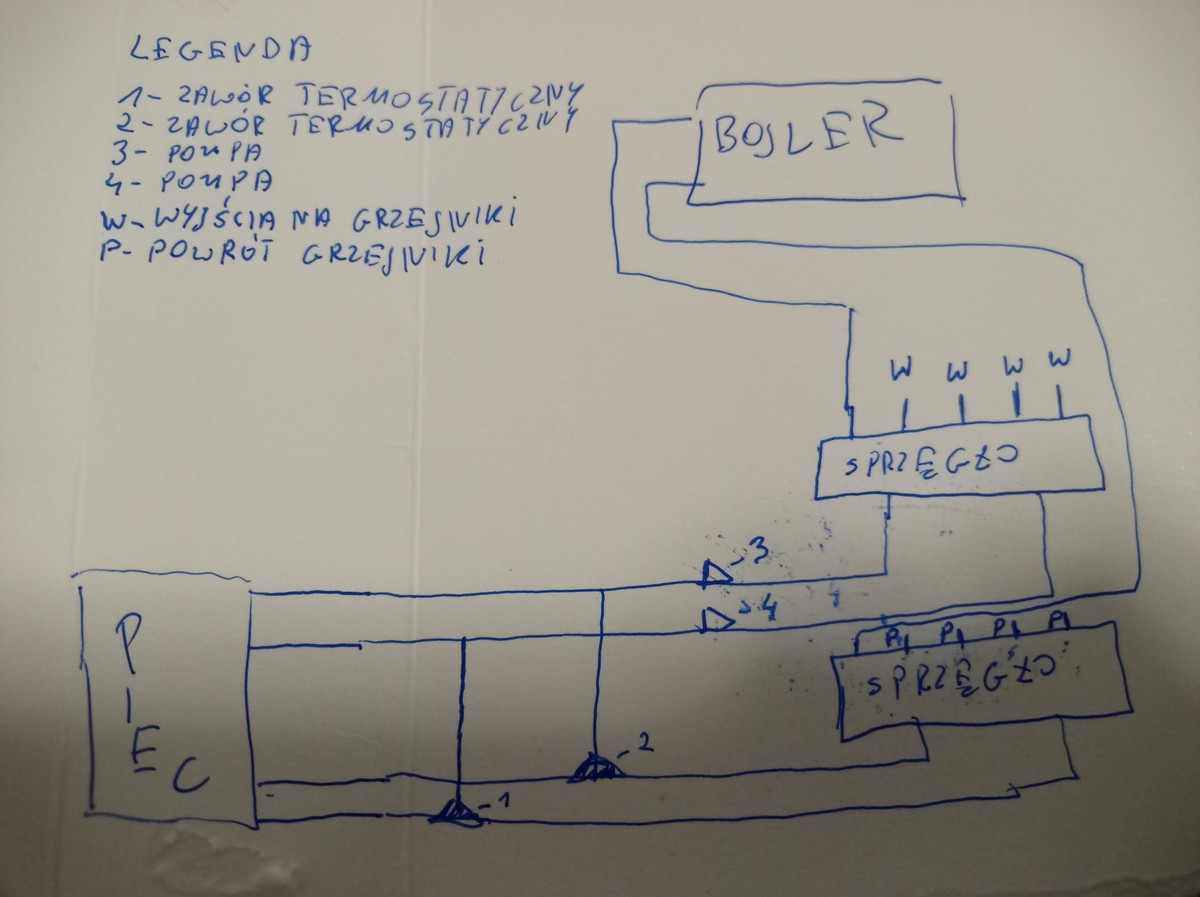 LEGENDA
1- ZAWÓR TERMOSTATYCZNY
2- ZAWÓR TERMOSTATYCZNY
3- POMPA
4- POMPA
W- WYJŚCIA NA GRZEJNIKI
P- POWRÓT GRZEJNIKI
BOJLER
W W W W
SPRZĘGŁO
3
4
P P P P
SPRZĘGŁO
PIEC
2
1